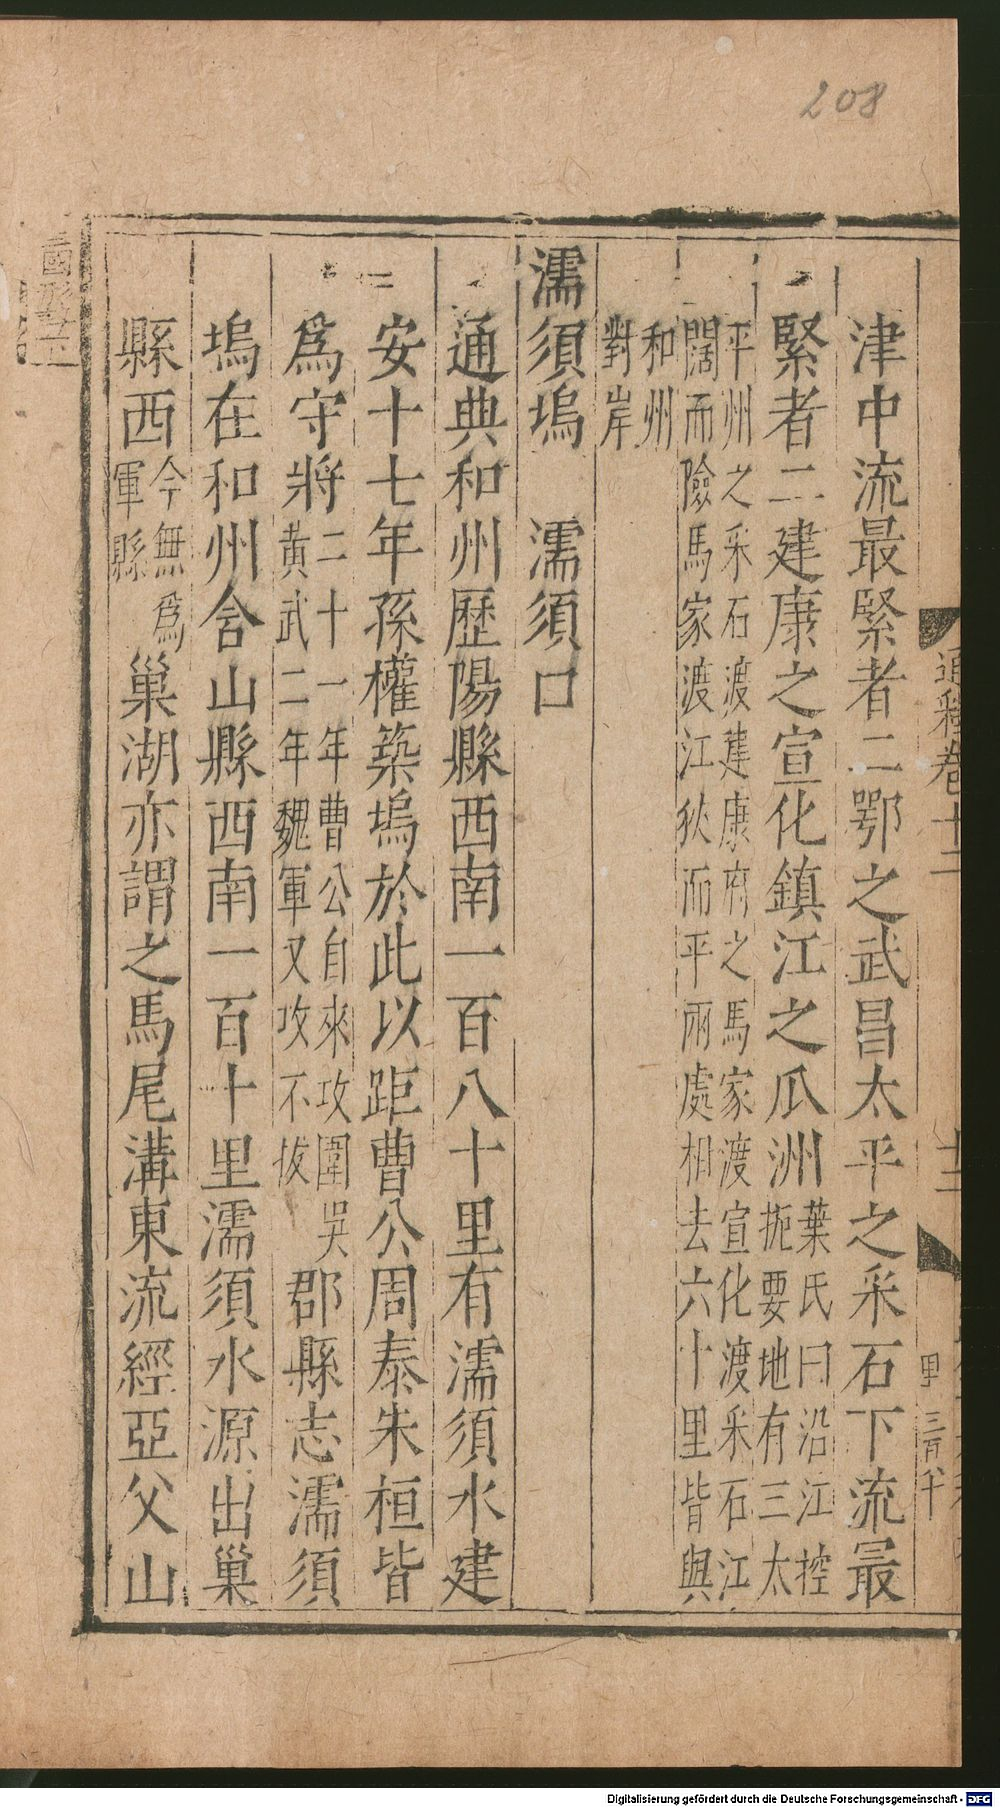 208
津中流最緊者二鄂之武昌太平之采石下流最
緊者二建康之宣化鎮江之瓜洲葉氏曰沿江控
扼要地有三太
平州之采石渡建康府之馬家渡宣化渡采石江
闊而險馬家渡江狄而平兩處相去六十里皆與
和州
對岸
濡須塢 濡須口
通典和州歷陽縣西南一百八十里有濡須水建
安十七年孫權築塢於此以距曹公周泰朱桓皆
爲守將二十一年曹公自來攻圍吳
黃武二年魏軍又攻不拔
郡縣志濡須
塢在和州含山縣西南一百十里濡須水源出巢
縣西今無爲
軍縣
巢湖亦謂之馬尾溝東流經亞父山
通釋卷十二
十二
Digitalisierung gefördert durch die Deutsche Forschungsgemeinschaft - DFG